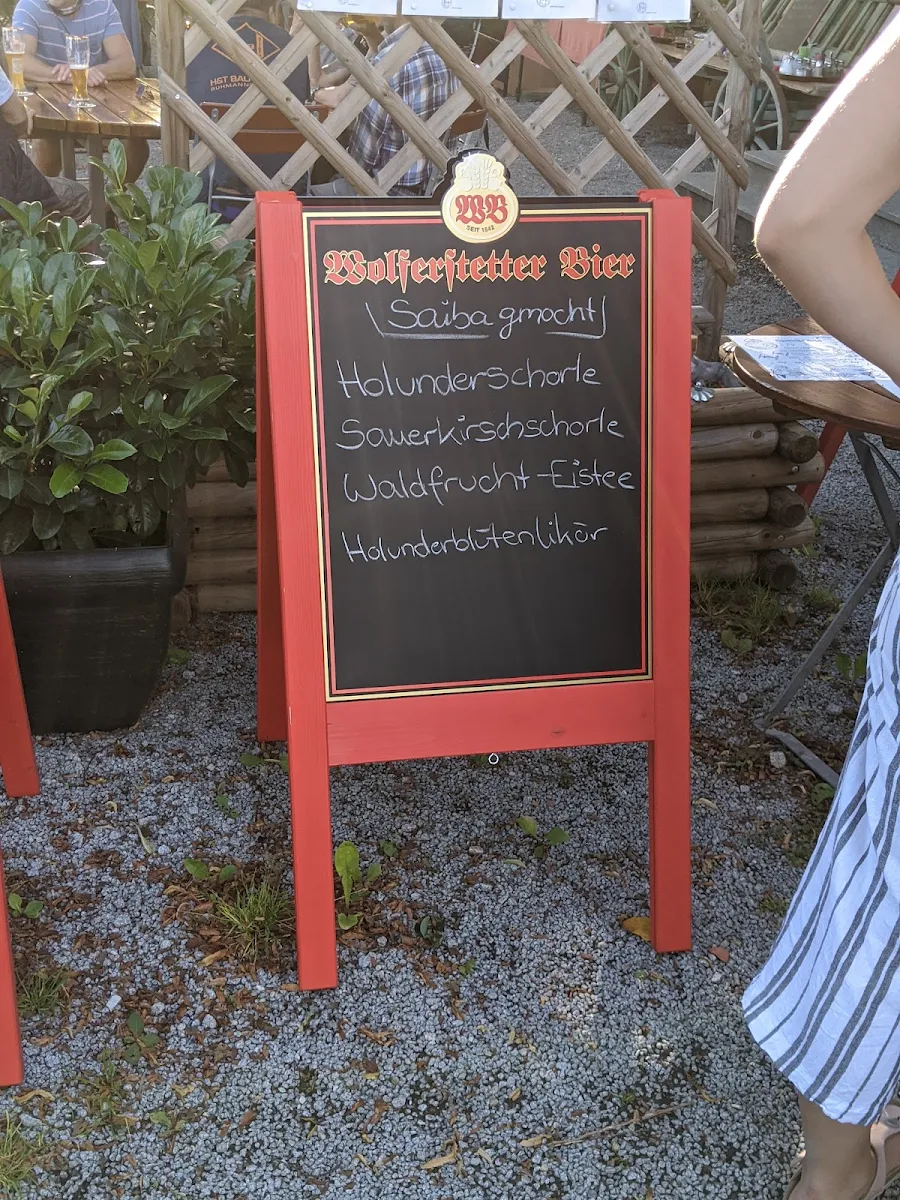 HGT BAU
RUHMANN
WB
SEIT 1542
Wolferstetter Bier
Saiba gmocht
Holunderschorle
Sauerkirschschorle
Waldfrucht-Eistee
Holunderblütenlikör